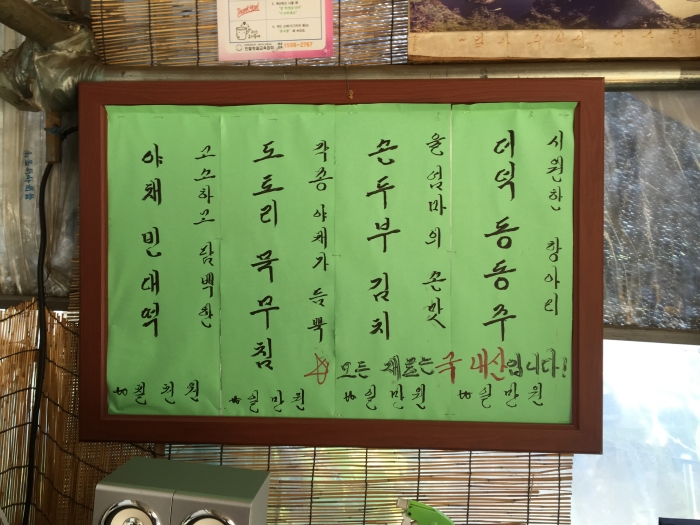 시원한 항아리
더덕 동동주
일만원
울 엄마의 손맛
손두부 김치
일만원
각종 야채가 듬뿍
도토리 묵무침
일만원
고소하고 담백한
야채 빈대떡
칠천원
모든 재료는 국내산입니다!